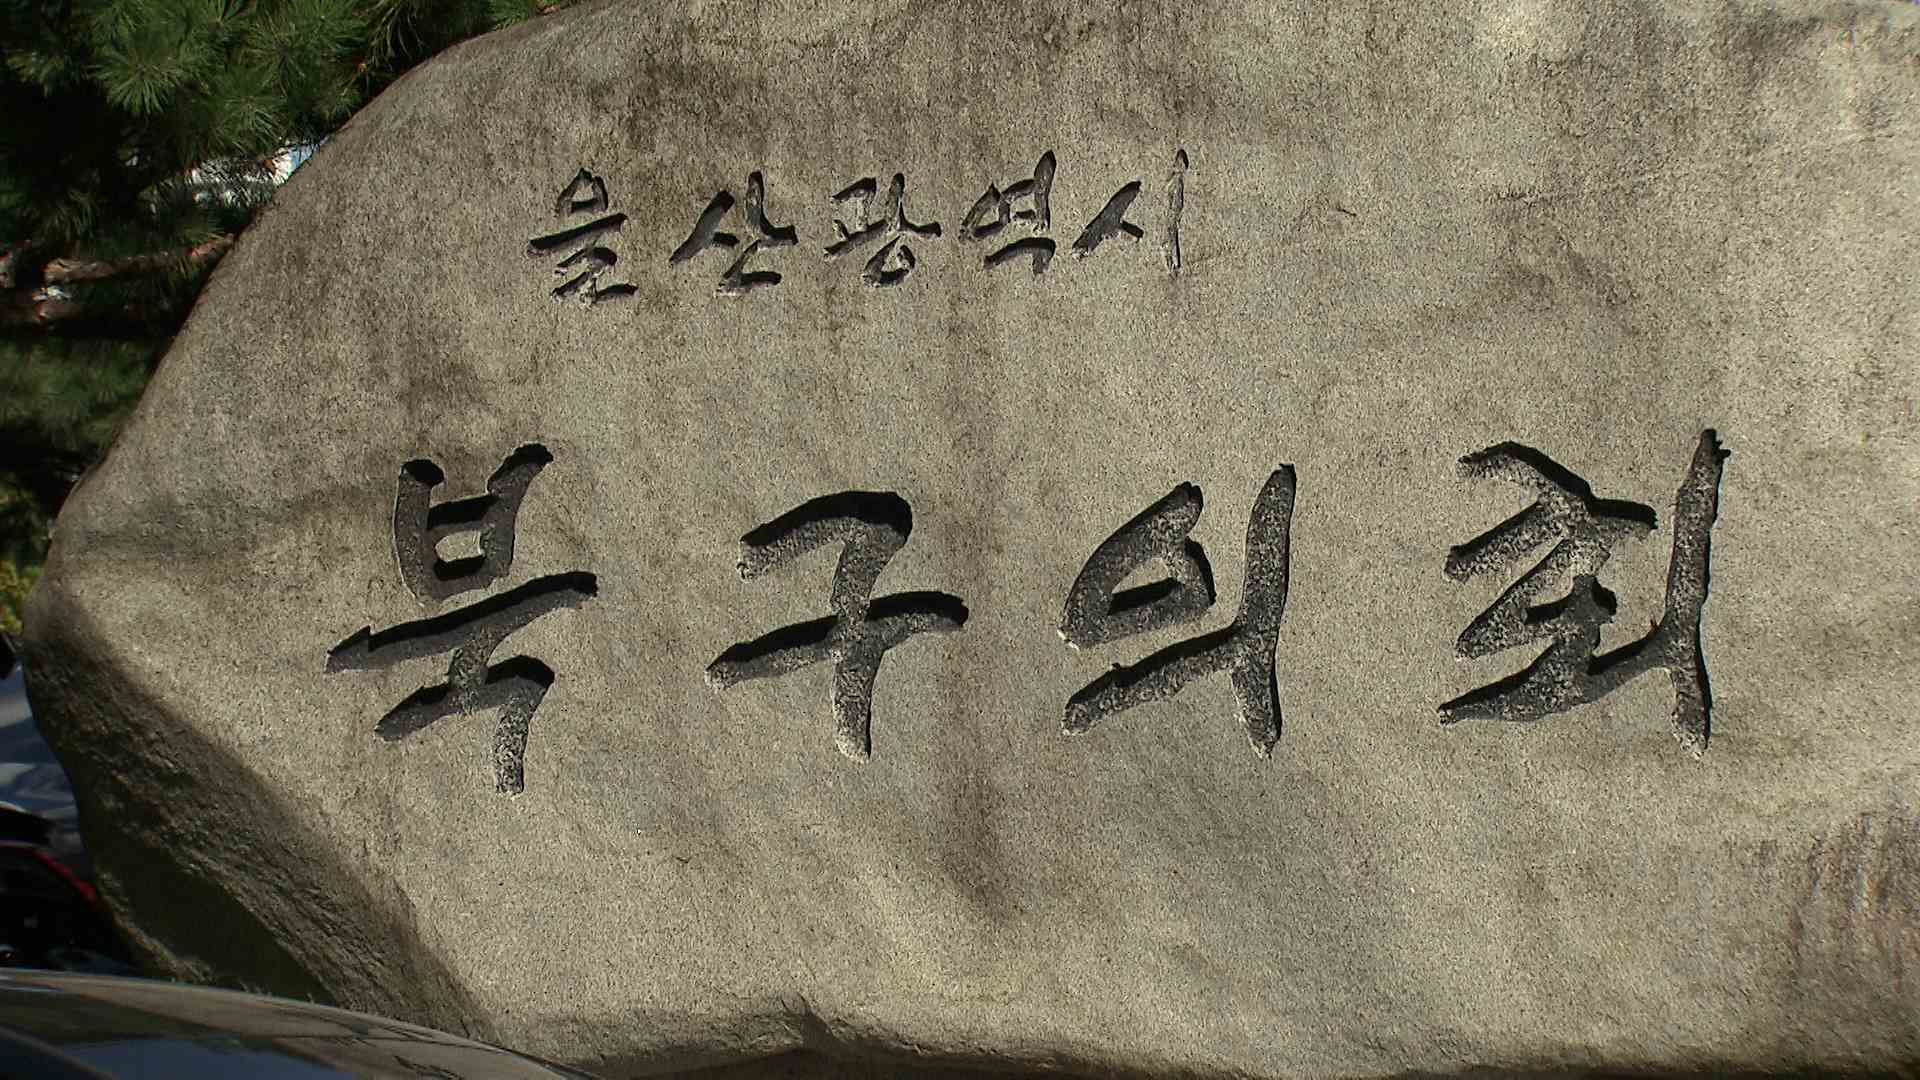 울산광역시
북구의회